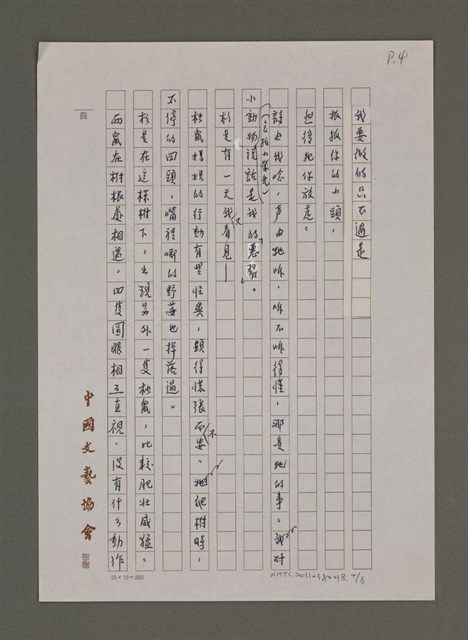 P.4
我要做的只不過是
抓抓你的小頭，
然後把你放走。
詩由我唸，声由牠咻，咻不咻得懂，那是牠的事。我对
（包括小螢光）
小動物說話是我的惡習。
於是有一天我又看見——
松鼠媽媽的行動有些怪異，顯得慌張不安。牠爬樹時，
不停的回頭，嘴裡啣的野莓也掉落過。
於是在這棵樹下，出現另外一隻松鼠，比較肥壯威猛。
兩鼠在樹根處相遇。四隻圓眼相互直視。沒有什么動作
頁
中國文藝協會
25×10=250
NMTL 20110380018 4/8